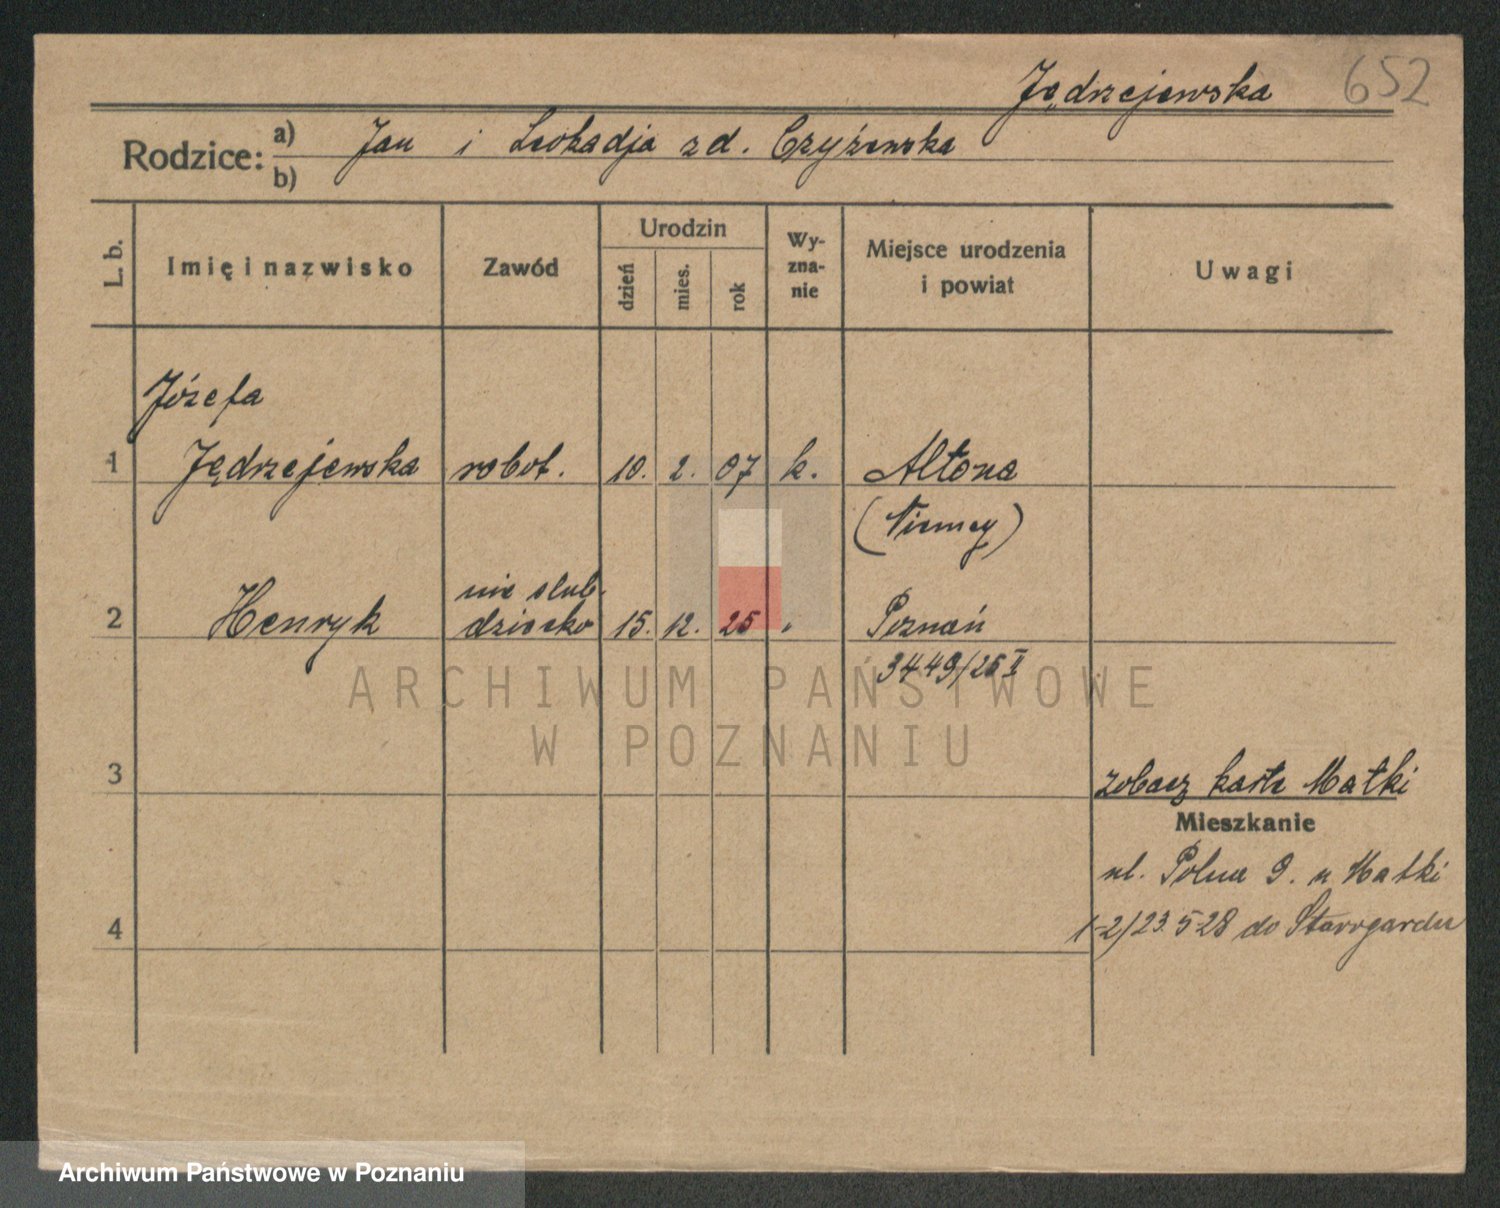 Jędrzejewska 652
Rodzice: a) Jan i Leokadja zd. Czyżewska
b)
L. b. Imię i nazwisko Zawód Urodzin dzień mies. rok Wyznanie Miejsce urodzenia i powiat Uwagi
Józefa
1 Jędrzejewska robot. 10. 2. 07 k. Altona
(Niemcy)
nie ślub.
2 Henryk dziecko 15. 12. 25 " Poznań
3449/25 II
ARCHIWUM PAŃSTWOWE
W POZNANIU
3 zobacz kartę Matki
Mieszkanie
ul. Polna 9. u Matki
4 1-2/23.5.28 do Starogardu
Archiwum Państwowe w Poznaniu